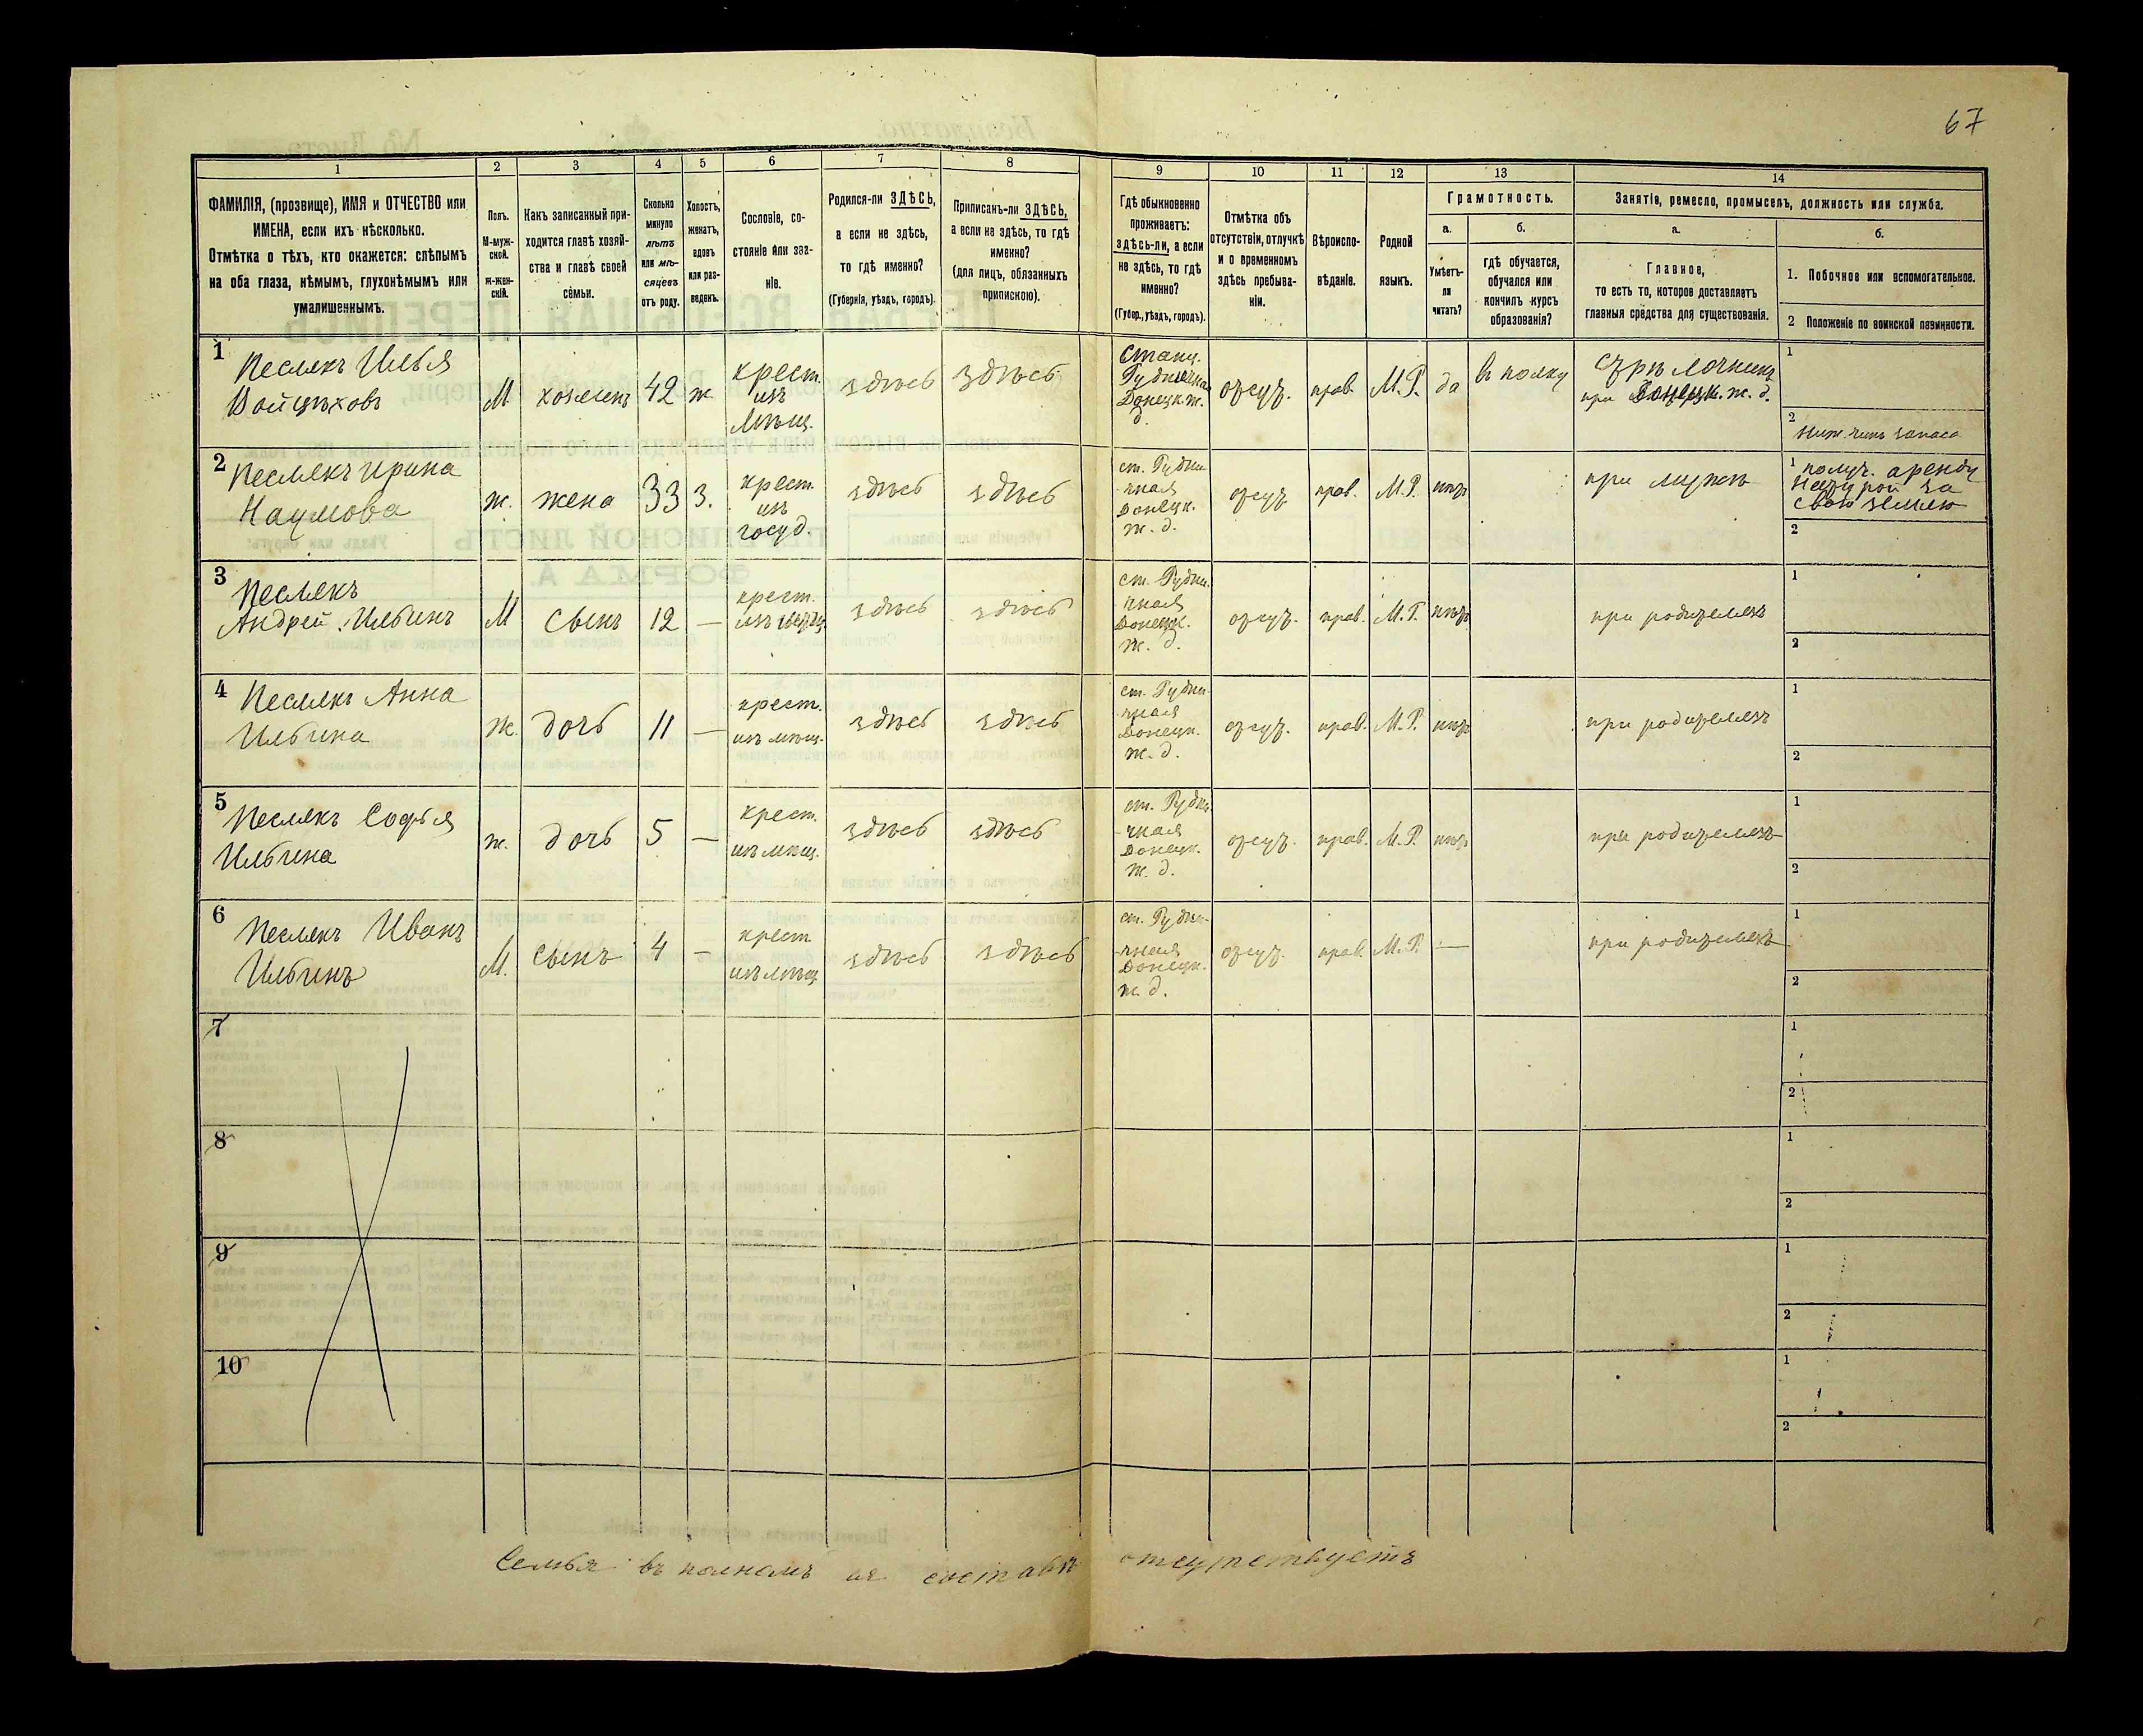 67
1 2 3 4 5 6 7 8 9 10 11 12 13 14
ФАМИЛІЯ, (прозвище), ИМЯ и ОТЧЕСТВО или
ИМЕНА, если ихъ нѣсколько.
Отмѣтка о тѣхъ, кто окажется: слѣпымъ
на оба глаза, нѣмымъ, глухонѣмымъ или
умалишеннымъ.
Полъ.
М-муж-
ской.
ж-жен-
скій.
Какъ записанный при-
ходится главѣ хозяй-
ства и главѣ своей
семьи.
Сколько
минуло
лѣтъ
или мѣ-
сяцевъ
отъ роду.
Холостъ,
женатъ,
вдовъ
или раз-
веденъ.
Сословіе, со-
стояніе или зва-
ніе.
Родился-ли ЗДѢСЬ,
а если не здѣсь,
то гдѣ именно?
(Губернія, уѣздъ, городъ).
Приписанъ-ли ЗДѢСЬ,
а если не здѣсь, то гдѣ
именно?
(для лицъ, обязанныхъ
припискою).
Гдѣ обыкновенно
проживаетъ:
здѣсь-ли, а если
не здѣсь, то гдѣ
именно?
(Губер., уѣздъ, городъ).
Отмѣтка объ
отсутствіи, отлучкѣ
и о временномъ
здѣсь пребыва-
ніи.
Вѣроиспо-
вѣданіе.
Родной
языкъ.
Грамотность.
а.
Умѣетъ-
ли
читать?
б.
гдѣ обучается,
обучался или
кончилъ курсъ
образованія?
Занятіе, ремесло, промыселъ, должность или служба.
а.
Главное,
то есть то, которое доставляетъ
главныя средства для существованія.
б.
1. Побочное или вспомогательное.
2 Положеніе по воинской повинности.
1
Песлякъ Илья
Войцѣховъ
М
хозяинъ
42
ж
крест.
изъ
мѣщ.
здѣсь
здѣсь
Станц.
Рудничная
Донецк. ж.
д.
отсут.
прав.
М.Р.
да
въ полку
стрѣлочникъ
при Донецк. ж. д.
1
2
Ниж. чинъ запаса
2
Песлякъ Ирина
Наумова
ж.
жена
33
з.
крест.
изъ
госуд.
здѣсь
здѣсь
ст. Рудни-
чная
Донецк.
ж. д.
отсут.
прав.
М.Р.
нѣт
при мужѣ
1 получ. аренду
натурой за
свою землю
2
3
Песлякъ
Андрей Ильинъ
М
сынъ
12
—
крест.
изъ мѣщ.
здѣсь
здѣсь
ст. Рудни-
чная
Донецк.
ж. д.
отсут.
прав.
М.Р.
нѣт
при родителяхъ
1
2
4
Песлякъ Анна
Ильина
ж.
дочь
11
—
крест.
изъ мѣщ.
здѣсь
здѣсь
ст. Рудни-
чная
Донецк.
ж. д.
отсут.
прав.
М.Р.
нѣт
при родителяхъ
1
2
5
Песлякъ Софья
Ильина
ж.
дочь
5
—
крест.
изъ мѣщ.
здѣсь
здѣсь
ст. Рудни-
чная
Донецк.
ж. д.
отсут.
прав.
М.Р.
нѣт
при родителяхъ
1
2
6
Песлякъ Иванъ
Ильинъ
М.
сынъ
4
—
крест.
изъ мѣщ.
здѣсь
здѣсь
ст. Рудни-
чная
Донецк.
ж. д.
отсут.
прав.
М.Р.
—
при родителяхъ
1
2
7
1
2
8
1
2
9
1
2
10
1
2
Семья въ полномъ ея составѣ отсутствуетъ